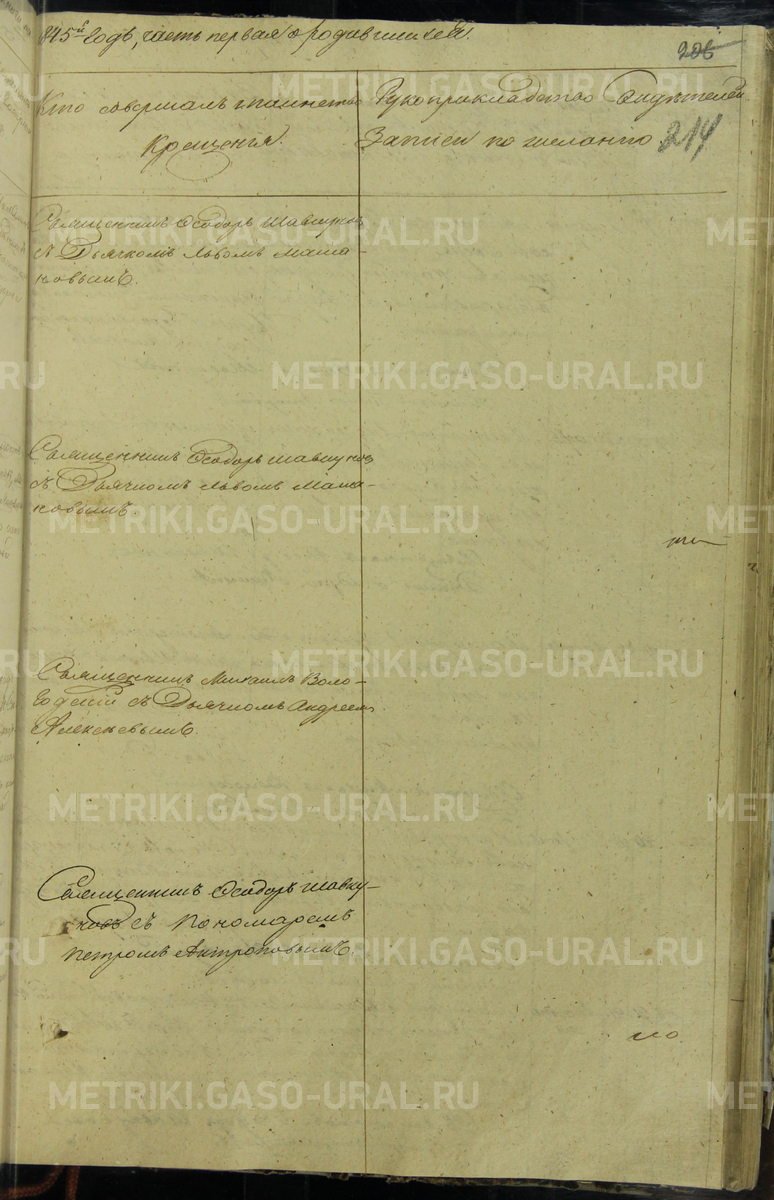 845й годъ, часть первая о родившихся. 206
Кто совершалъ таинство Рукоприкладство Свидѣтелей
крещенія. Записи по желанію 214
Священникъ Ѳеодоръ Шавкуновъ
съ Дьячкомъ Львомъ Маша-
ковымъ.
METRIKI.GASO-URAL.RU
METRIKI.GASO-URAL.RU
Священникъ Ѳеодоръ Шавкуновъ
съ Дьячкомъ Львомъ Маша-
ковымъ.
METRIKI.GASO-URAL.RU
Священникъ Михаилъ Воло-
годскій съ Дьячкомъ Андреемъ
Алексѣевымъ.
METRIKI.GASO-URAL.RU
METRIKI.GASO-URAL.RU
Священникъ Ѳеодоръ Шавку-
новъ съ Пономаремъ
Петромъ Антроповымъ.
METRIKI.GASO-URAL.RU
METRIKI.GASO-URAL.RU